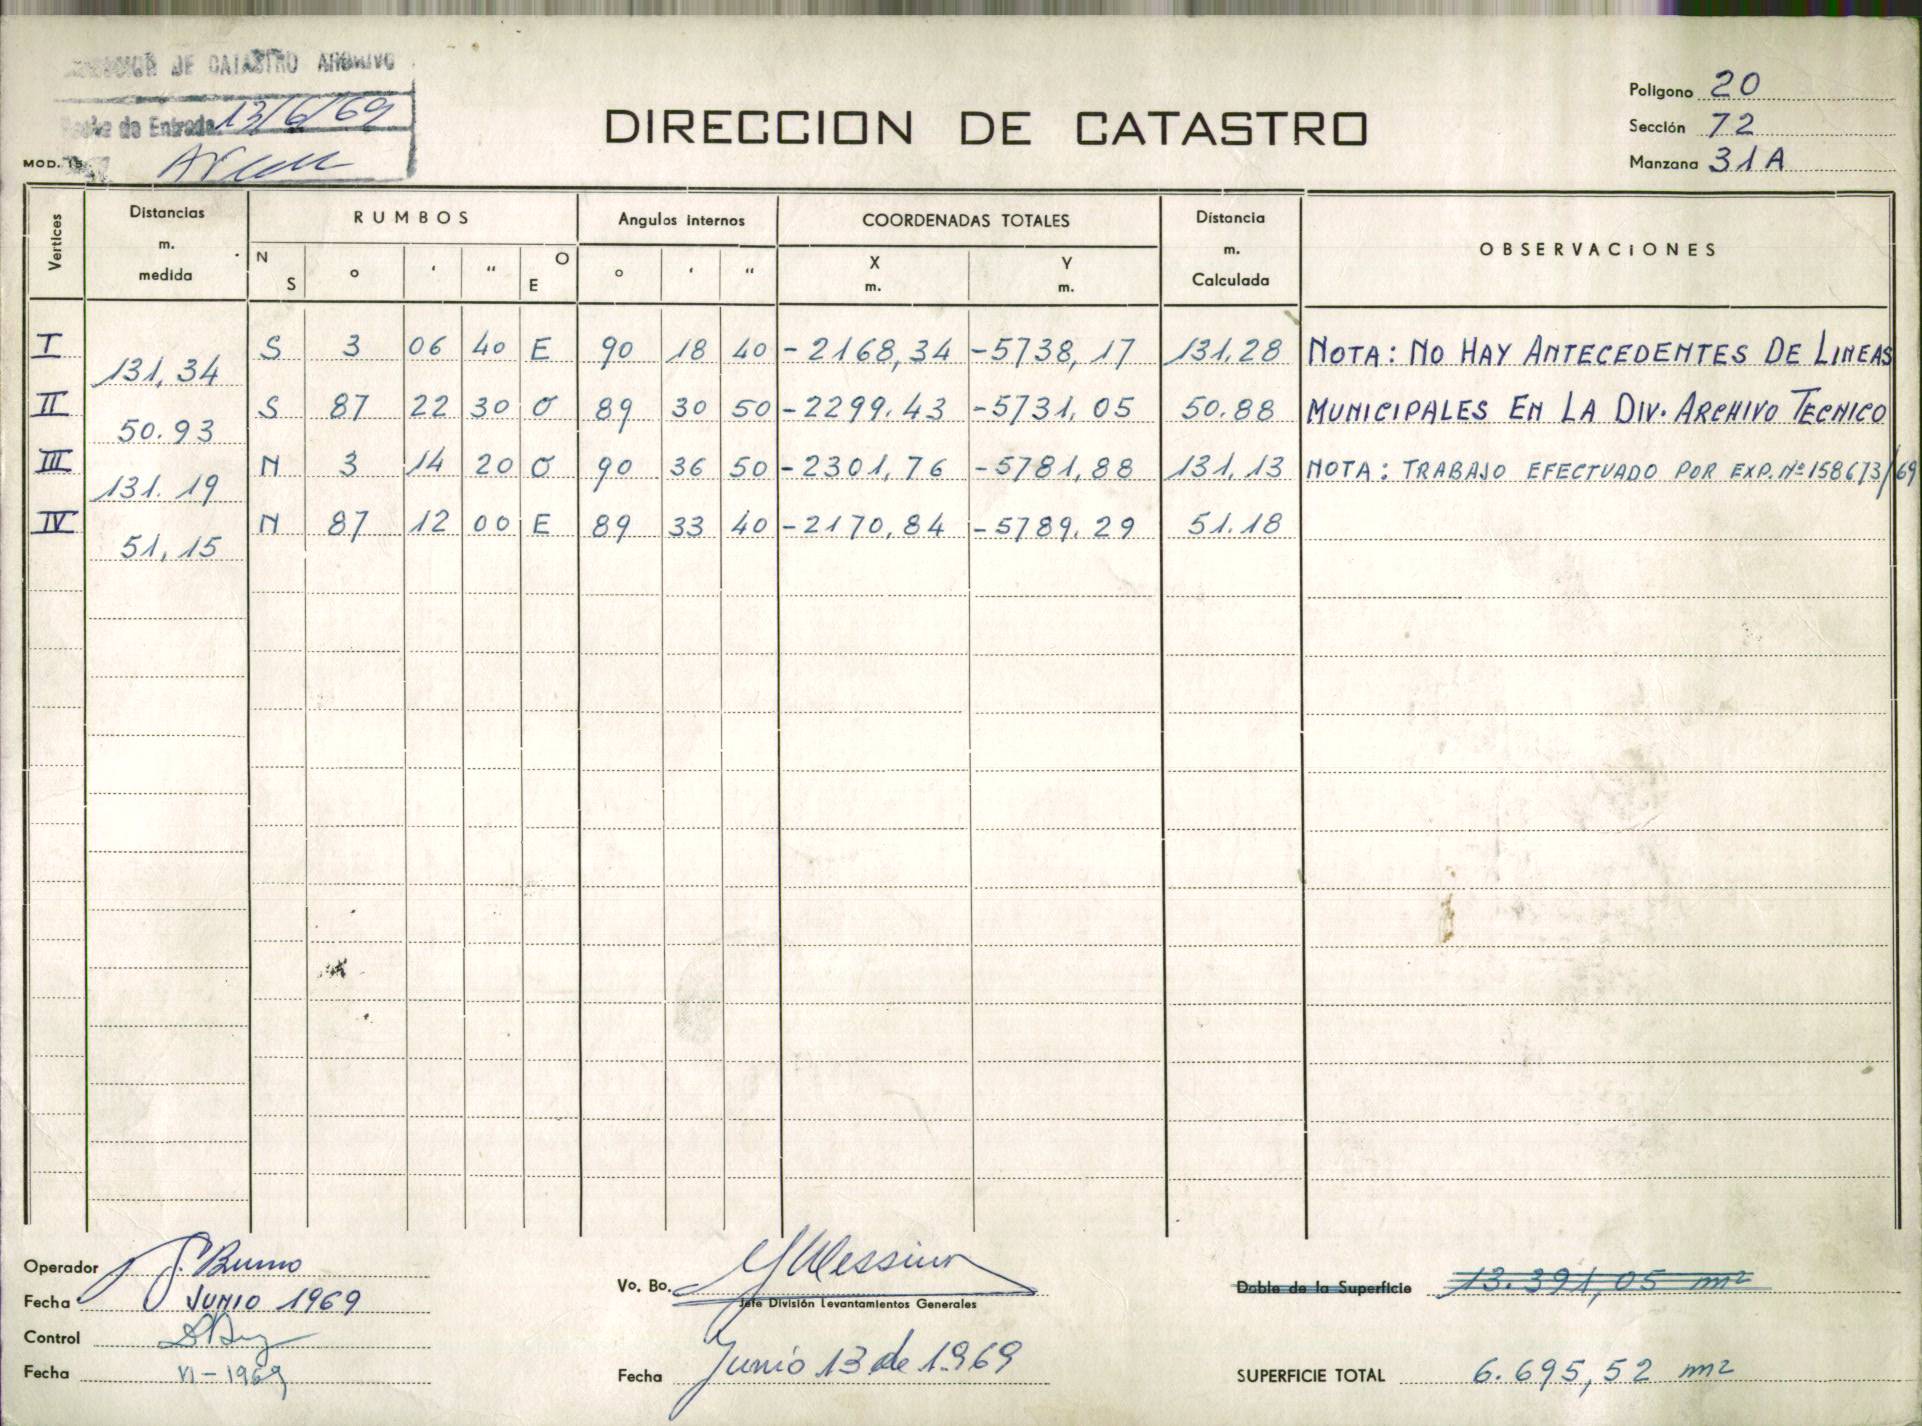 DE CATASTRO ARCHIVO
Fecha de Entrada 13/6/69
MOD. 15
DIRECCION DE CATASTRO
Poligono 20
Sección 72
Manzana 31A
Vertices
Distancias m. medida
RUMBOS
Angulos internos
COORDENADAS TOTALES
Distancia m. Calculada
OBSERVACIONES
N S ° ' " O E
° ' "
X m.
Y m.
I S 3 06 40 E 90 18 40 -2168,34 -5738,17 131.28 NOTA: NO HAY ANTECEDENTES DE LINEAS
131,34
II S 87 22 30 O 89 30 50 -2299.43 -5731,05 50.88 MUNICIPALES EN LA DIV. ARCHIVO TECNICO
50.93
III N 3 14 20 O 90 36 50 -2301,76 -5781,88 131,13 NOTA: TRABAJO EFECTUADO POR EXP. Nº 158673/69
131.19
IV N 87 12 00 E 89 33 40 -2170,84 -5789,29 51.18
51,15
Operador
Fecha JUNIO 1969
Control
Fecha VI-1969
Vo. Bo. Messina
Jefe División Levantamientos Generales
Fecha Junio 13 de 1969
Doble de la Superficie 13.391,05 m2
SUPERFICIE TOTAL 6.695,52 m2